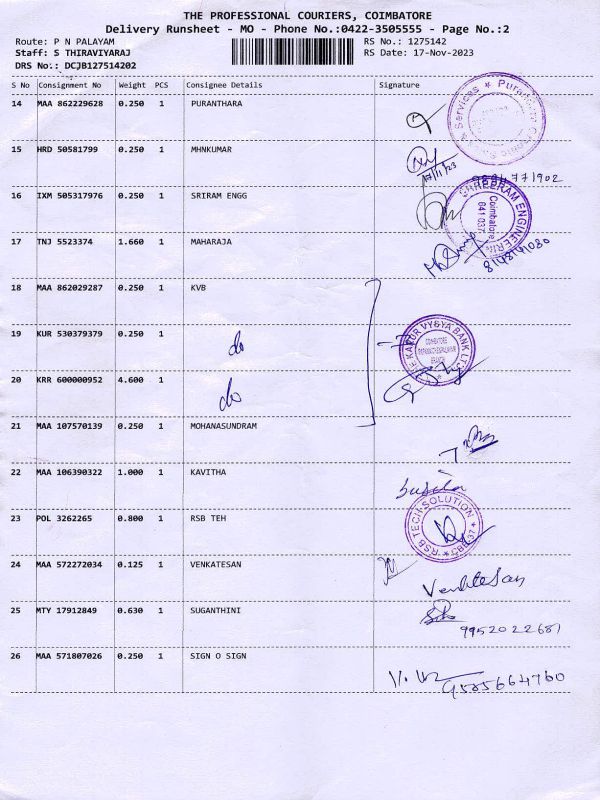 THE PROFESSIONAL COURIERS, COIMBATORE
Delivery Runsheet - MO - Phone No.:0422-3505555 - Page No.:2
Route: P N PALAYAM
RS No.: 1275142
Staff: S THIRAVIYARAJ
RS Date: 17-Nov-2023
DRS No.: DCJB127514202
S No Consignment No Weight PCS Consignee Details Signature
14 MAA 862229628 0.250 1 PURANTHARA
15 HRD 50581799 0.250 1 MHNKUMAR
17/11/23
16 IXM 505317976 0.250 1 SRIRAM ENGG
SHREERAM ENGINEERING
Coimbatore
641 037
17 TNJ 5523374 1.660 1 MAHARAJA
18 MAA 862029287 0.250 1 KVB
19 KUR 530379379 0.250 1 do
THE KARUR VYSYA BANK LTD
20 KRR 600000952 4.600 1 do
21 MAA 107570139 0.250 1 MOHANASUNDRAM
22 MAA 106390322 1.000 1 KAVITHA
23 POL 3262265 0.800 1 RSB TEH
RSB TECH SOLUTION
24 MAA 572272034 0.125 1 VENKATESAN
Venkatesan
25 MTY 17912849 0.630 1 SUGANTHINI
9952022687
26 MAA 571807026 0.250 1 SIGN O SIGN
9585664760